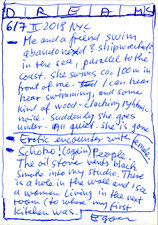 DREAMS
6/7 II 2018 NYC
Me and a friend swim
abandoned & shipwrecked
in the sea, parallel to the
coast. She swims ca 100m in
front of me. I can hear
her swimming, and some
kind of wood-clacking rythmic
noise. Suddenly she goes
under. All quiet. She is gone
Erotic encounter with
(again) People
The oil stove vents black
smoke into my studio. There
is a hole in the wall and I see
a woman living in the next
room (to where my first
kitchen was.